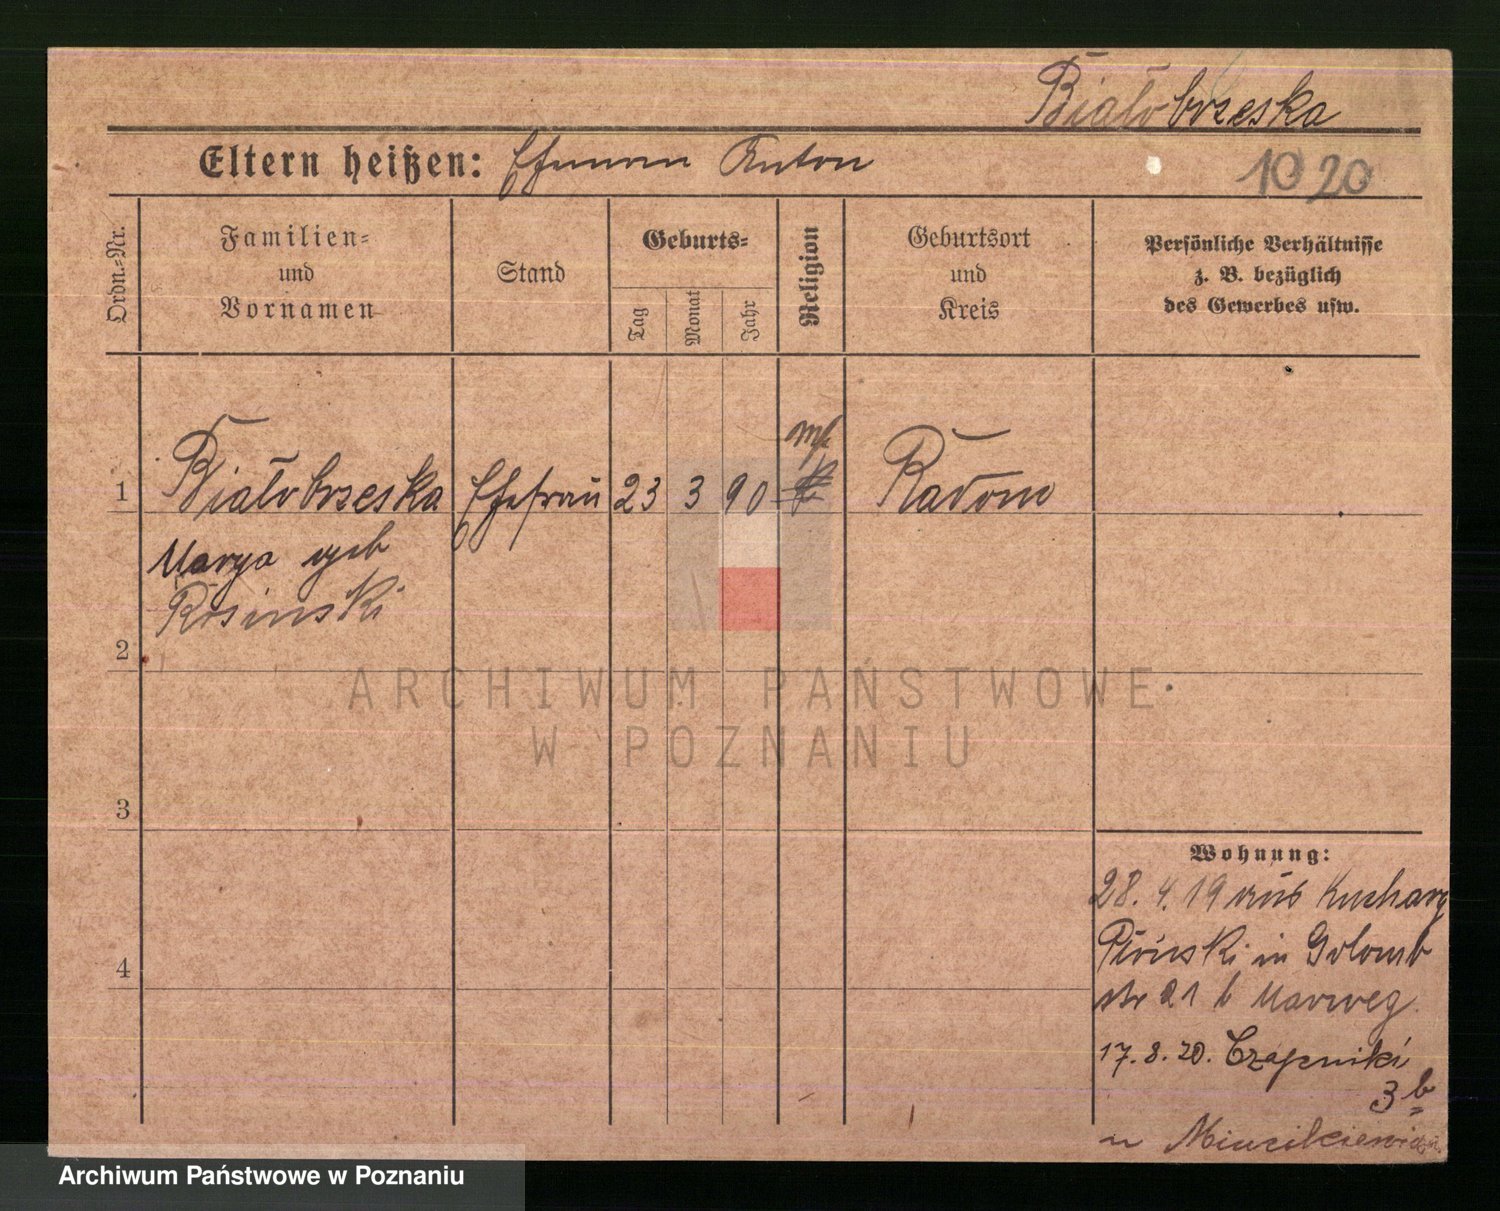 Białobrzeska
Eltern heißen: Ehemann Anton
10 20
Ordn.=Nr.
Familien=
und
Vornamen
Stand
Geburts=
Tag
Monat
Jahr
Religion
Geburtsort
und
Kreis
Persönliche Verhältnisse
z. B. bezüglich
des Gewerbes usw.
1 Białobrzeska Ehefrau 23 3 90 Radom
Marya geb
Rosinski
2
3
4
Wohnung:
28. 4. 19 aus
in Golomb
str 21 b
17. 8. 20.
3 b
ARCHIWUM PAŃSTWOWE
W POZNANIU
Archiwum Państwowe w Poznaniu